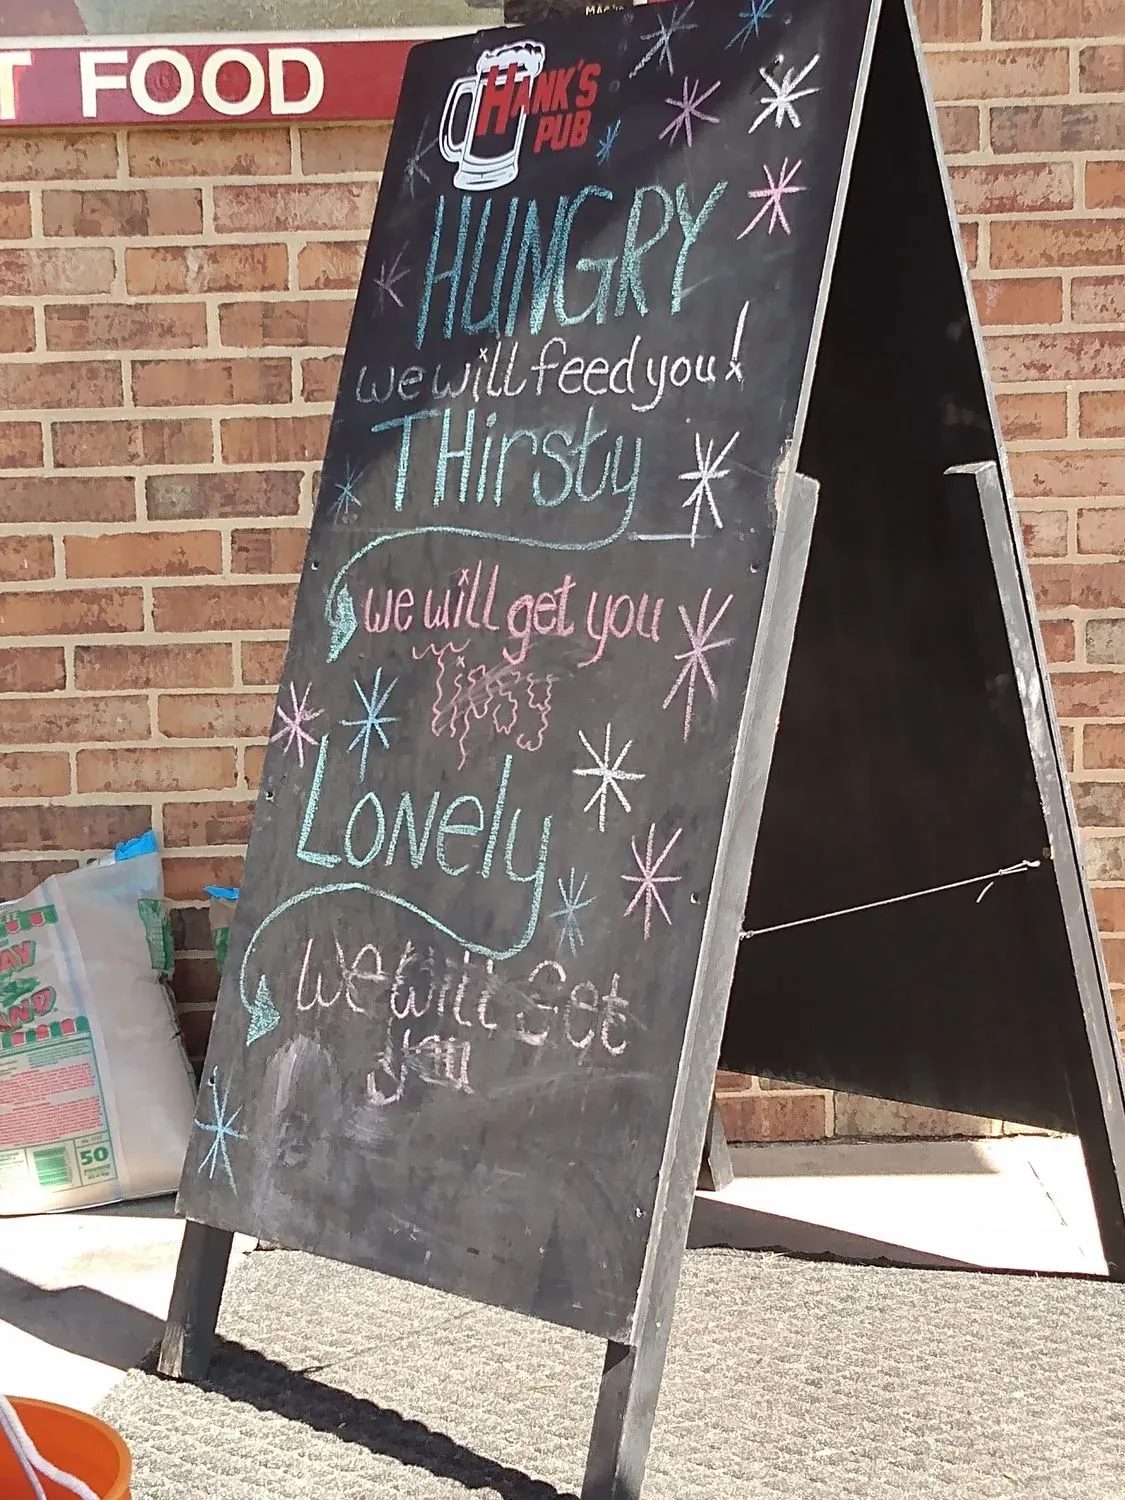 T FOOD
HANK'S
PUB
HUNGRY
we will feed you!
THirsty
we will get you
LONely
we will Get
you
50